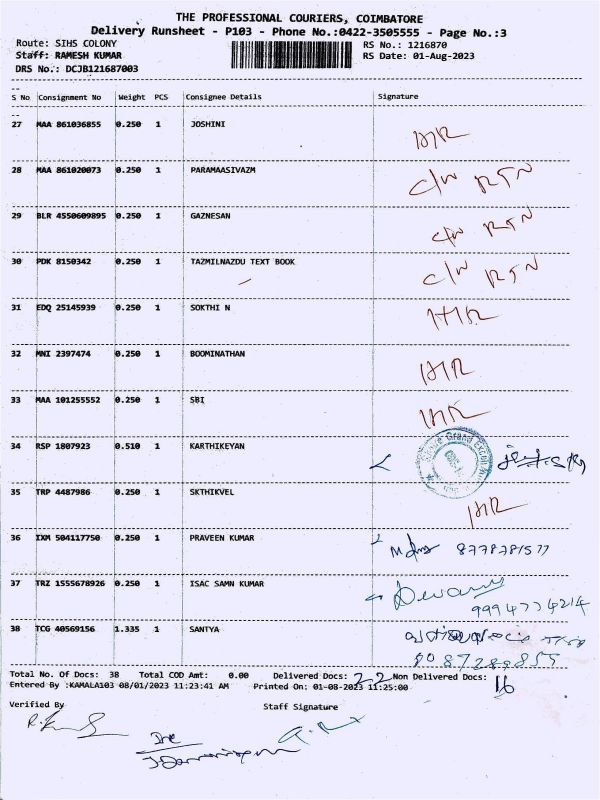 THE PROFESSIONAL COURIERS, COIMBATORE
Delivery Runsheet - P103 - Phone No.:0422-3505555 - Page No.:3
Route: SIHS COLONY
RS No.: 1216870
Staff: RAMESH KUMAR
RS Date: 01-Aug-2023
DRS No.: DCJB121687003
S No Consignment No Weight PCS Consignee Details Signature
27 MAA 861036855 0.250 1 JOSHINI
28 MAA 861020073 0.250 1 PARAMAASIVAZM C/W RTN
29 BLR 4550609895 0.250 1 GAZNESAN C/W RTN
30 PDK 8150342 0.250 1 TAZMILNAZDU TEXT BOOK C/W RTN
31 EDQ 25145939 0.250 1 SOKTHI N
32 MNI 2397474 0.250 1 BOOMINATHAN
33 MAA 101255552 0.250 1 SBI
34 RSP 1807923 0.510 1 KARTHIKEYAN
35 TRP 4487986 0.250 1 SKTHIKVEL
36 IXM 504117750 0.250 1 PRAVEEN KUMAR 8778781577
37 TRZ 1555678926 0.250 1 ISAC SAMN KUMAR
9994774214
38 TCG 40569156 1.335 1 SANTYA
8087289855
Total No. Of Docs: 38 Total COD Amt: 0.00 Delivered Docs: 22 Non Delivered Docs: 16
Entered By :KAMALA103 08/01/2023 11:23:41 AM Printed On: 01-08-2023 11:25:00
Verified By
Staff Signature